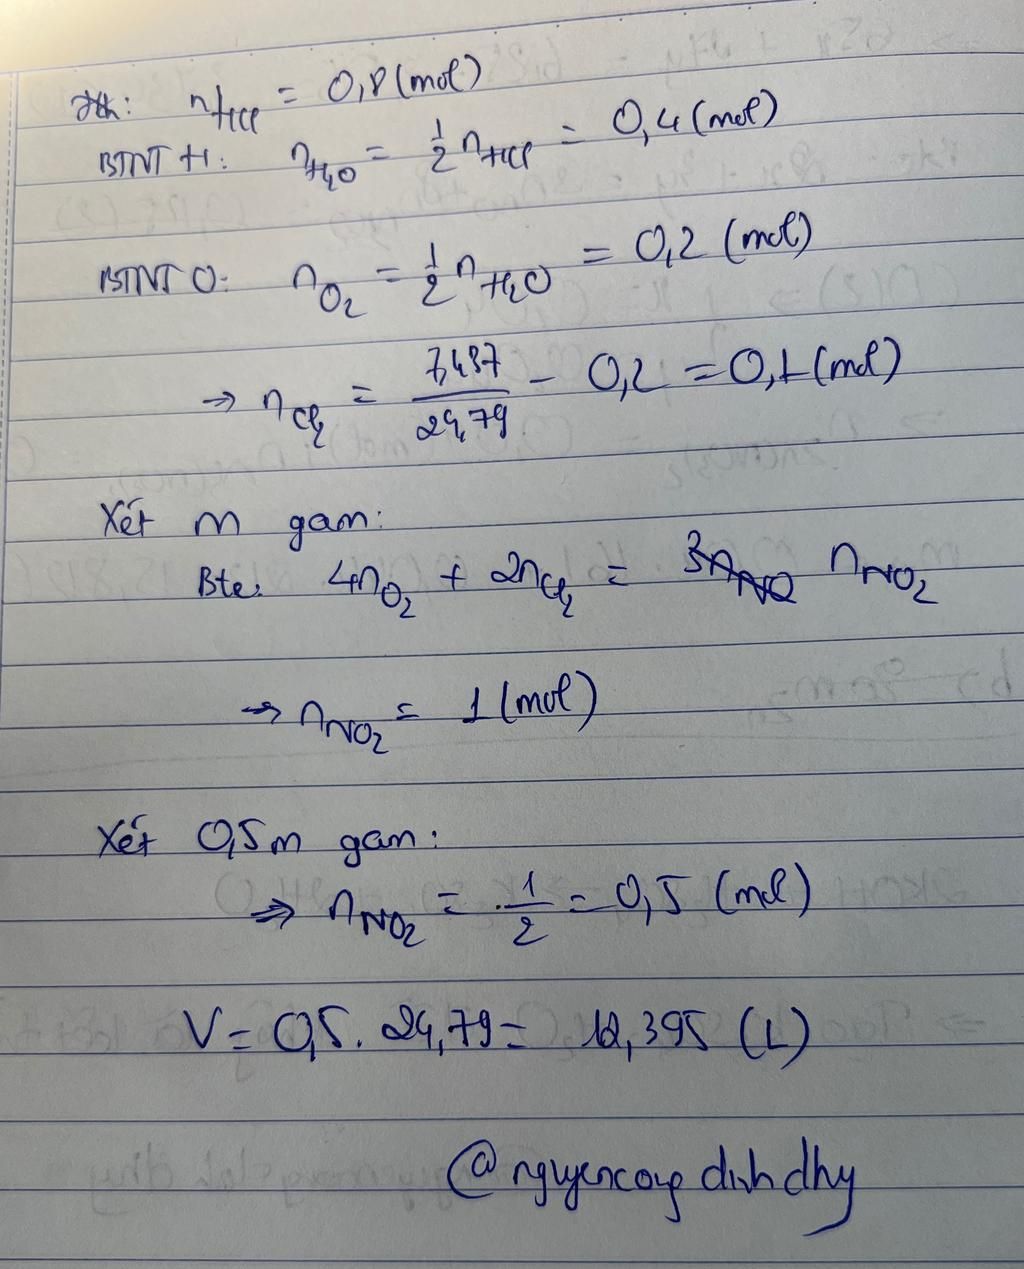 nHCl = 0,8 (mol)
BTNT H: nH₂O = 1/2 nHCl = 0,4 (mol)
BTNT O: nO₂ = 1/2 nH₂O = 0,2 (mol)
→ nCl₂ = 7,437/24,79 - 0,2 = 0,1 (mol)
Xét m gam:
Bte: 4nO₂ + 2nCl₂ = nNO₂
→ nNO₂ = 1 (mol)
Xét 0,5m gam:
⇒ nNO₂ = 1/2 = 0,5 (mol)
V = 0,5. 24,79 = 12,395 (L)
@nguyencongdinhdhy